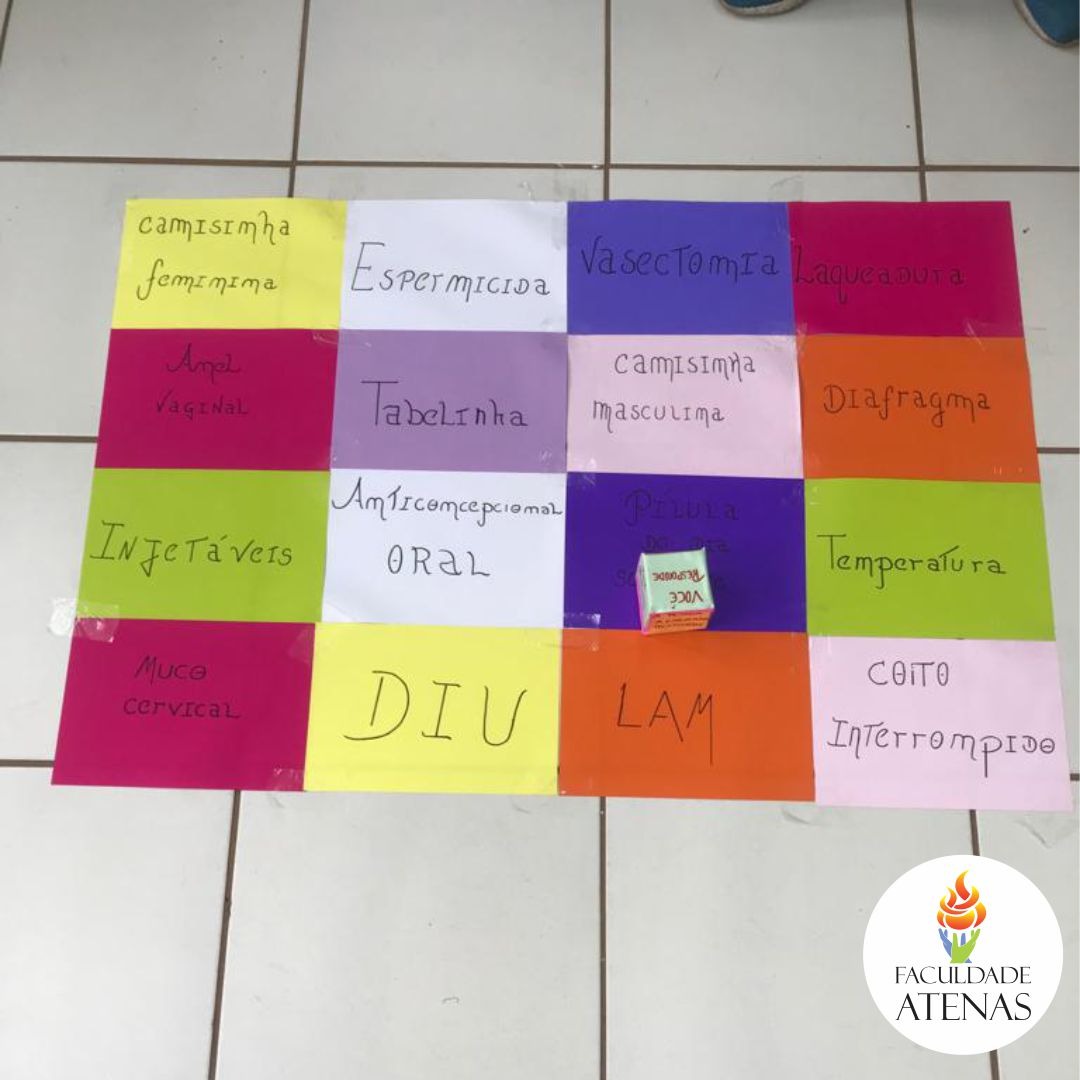 camisinha
feminina
Espermicida
Vasectomia
Laqueadura
Anel
vaginal
Tabelinha
camisinha
masculina
Diafragma
Injetáveis
Anticoncepcional
oral
Pílula
do dia
Temperatura
VOCÊ
RESPONDE
Muco
cervical
DIU
LAM
coito
Interrompido
FACULDADE
ATENAS